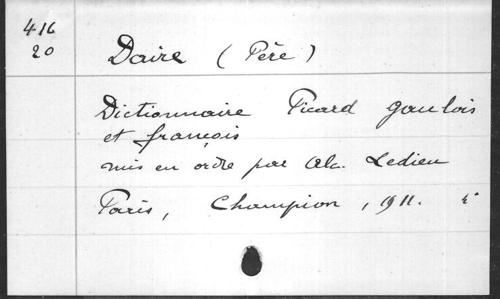 416
20
Daire (Père)
Dictionnaire Picard gaulois
et françois
mis en ordre par Alc. Ledieu
Paris, Champion, 1911. 4°